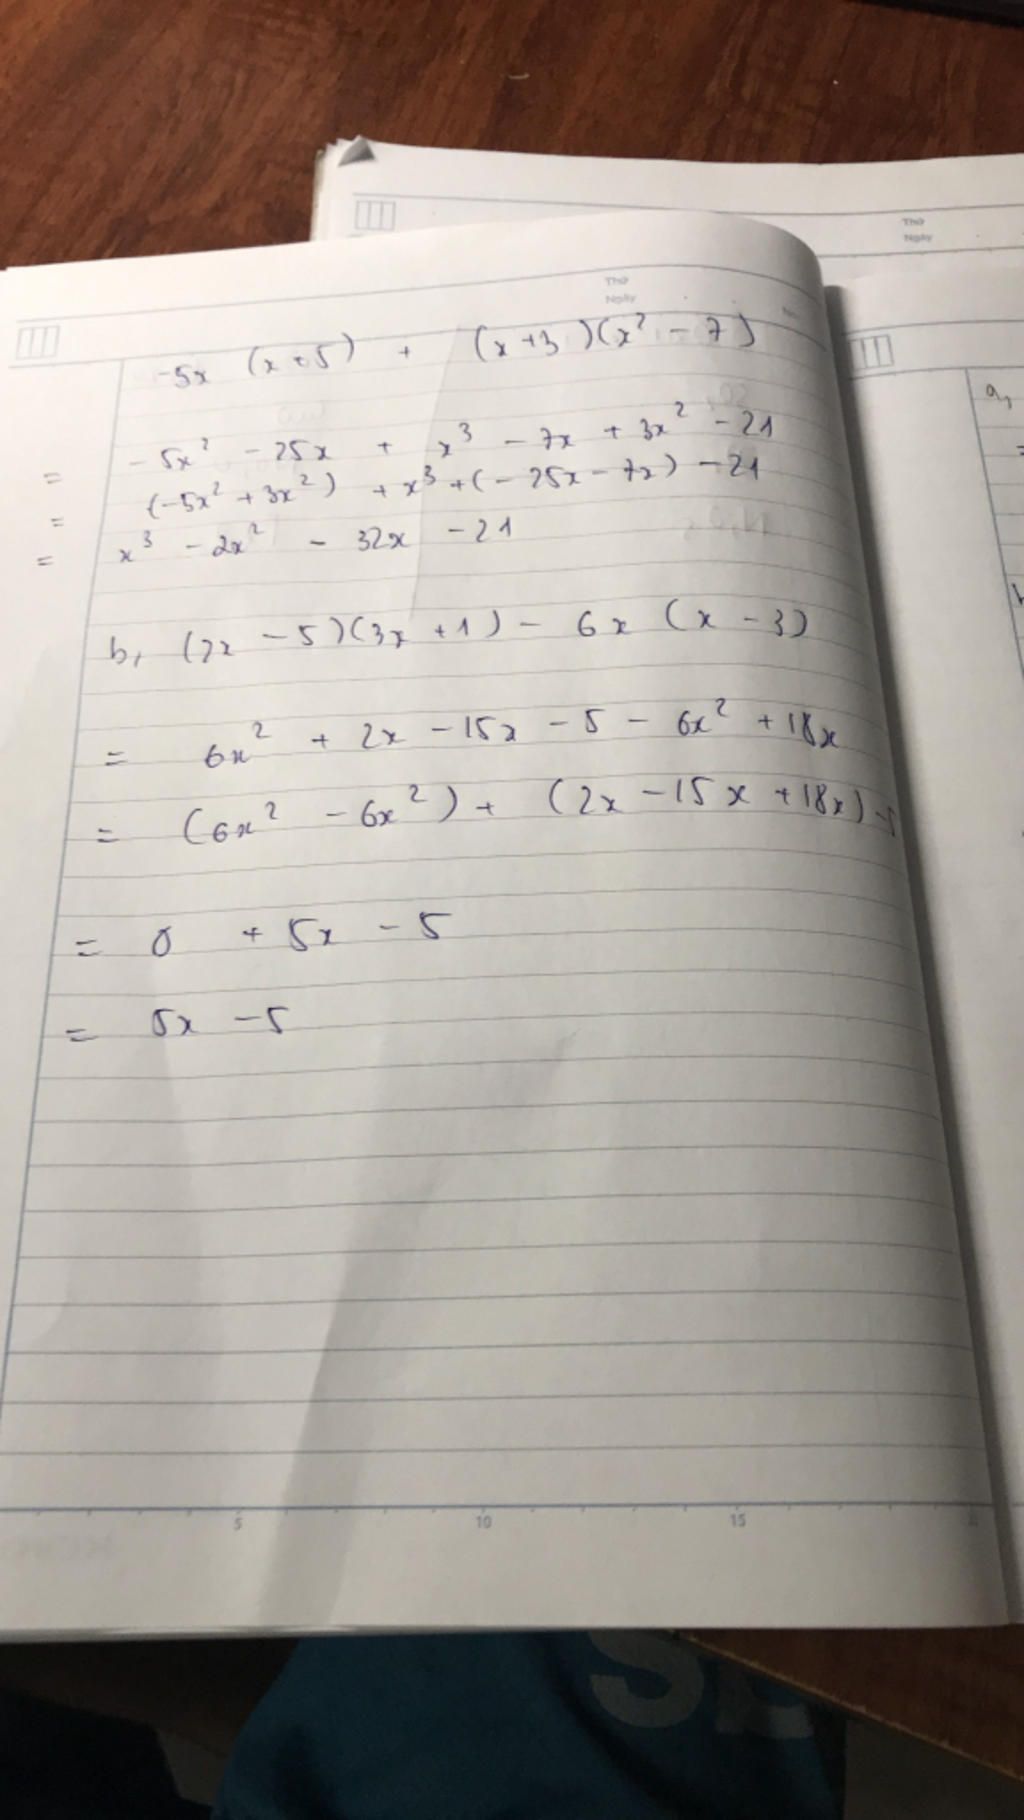 Thứ
Ngày
Thứ
Ngày
No.
-5x (x+5) + (x+3)(x² - 7)
= -5x² - 25x + x³ - 7x + 3x² - 21
= (-5x² + 3x²) + x³ + (-25x - 7x) - 21
= x³ - 2x² - 32x - 21
b, (2x - 5)(3x + 1) - 6x (x - 3)
= 6x² + 2x - 15x - 5 - 6x² + 18x
= (6x² - 6x²) + (2x - 15x + 18x) - 5
= 0 + 5x - 5
= 5x - 5
5 10 15
a,